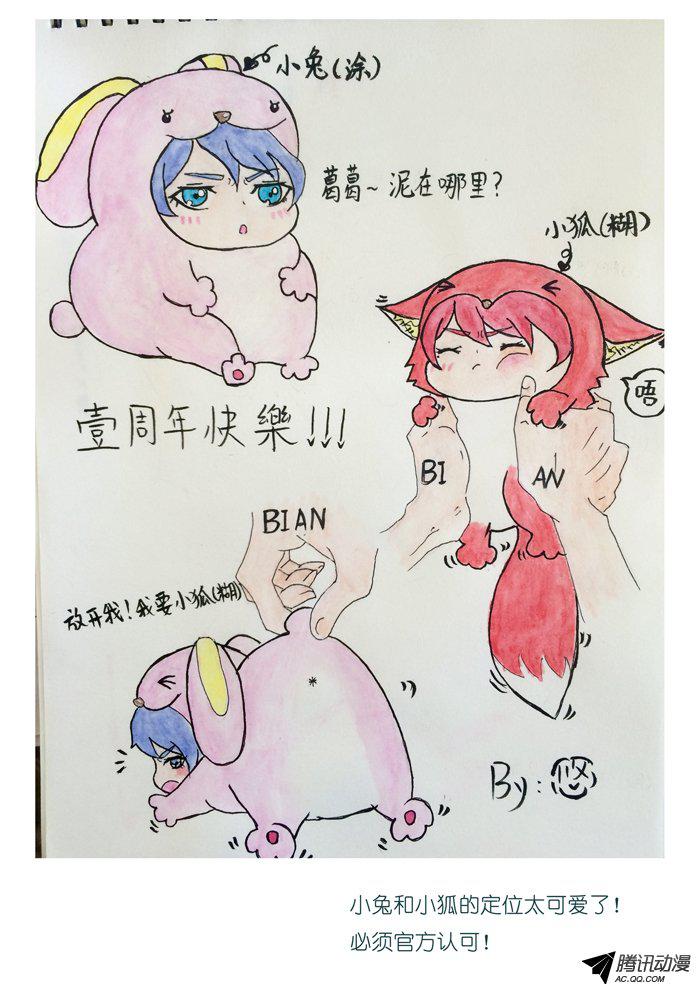 小兔(涂)
葛葛~泥在哪里?
小狐(糊)
唔
壹周年快樂!!!
BI AN
BIAN
放开我!我要小狐(糊)
By:悠
小兔和小狐的定位太可爱了!
必须官方认可!
腾讯动漫
AC.QQ.COM